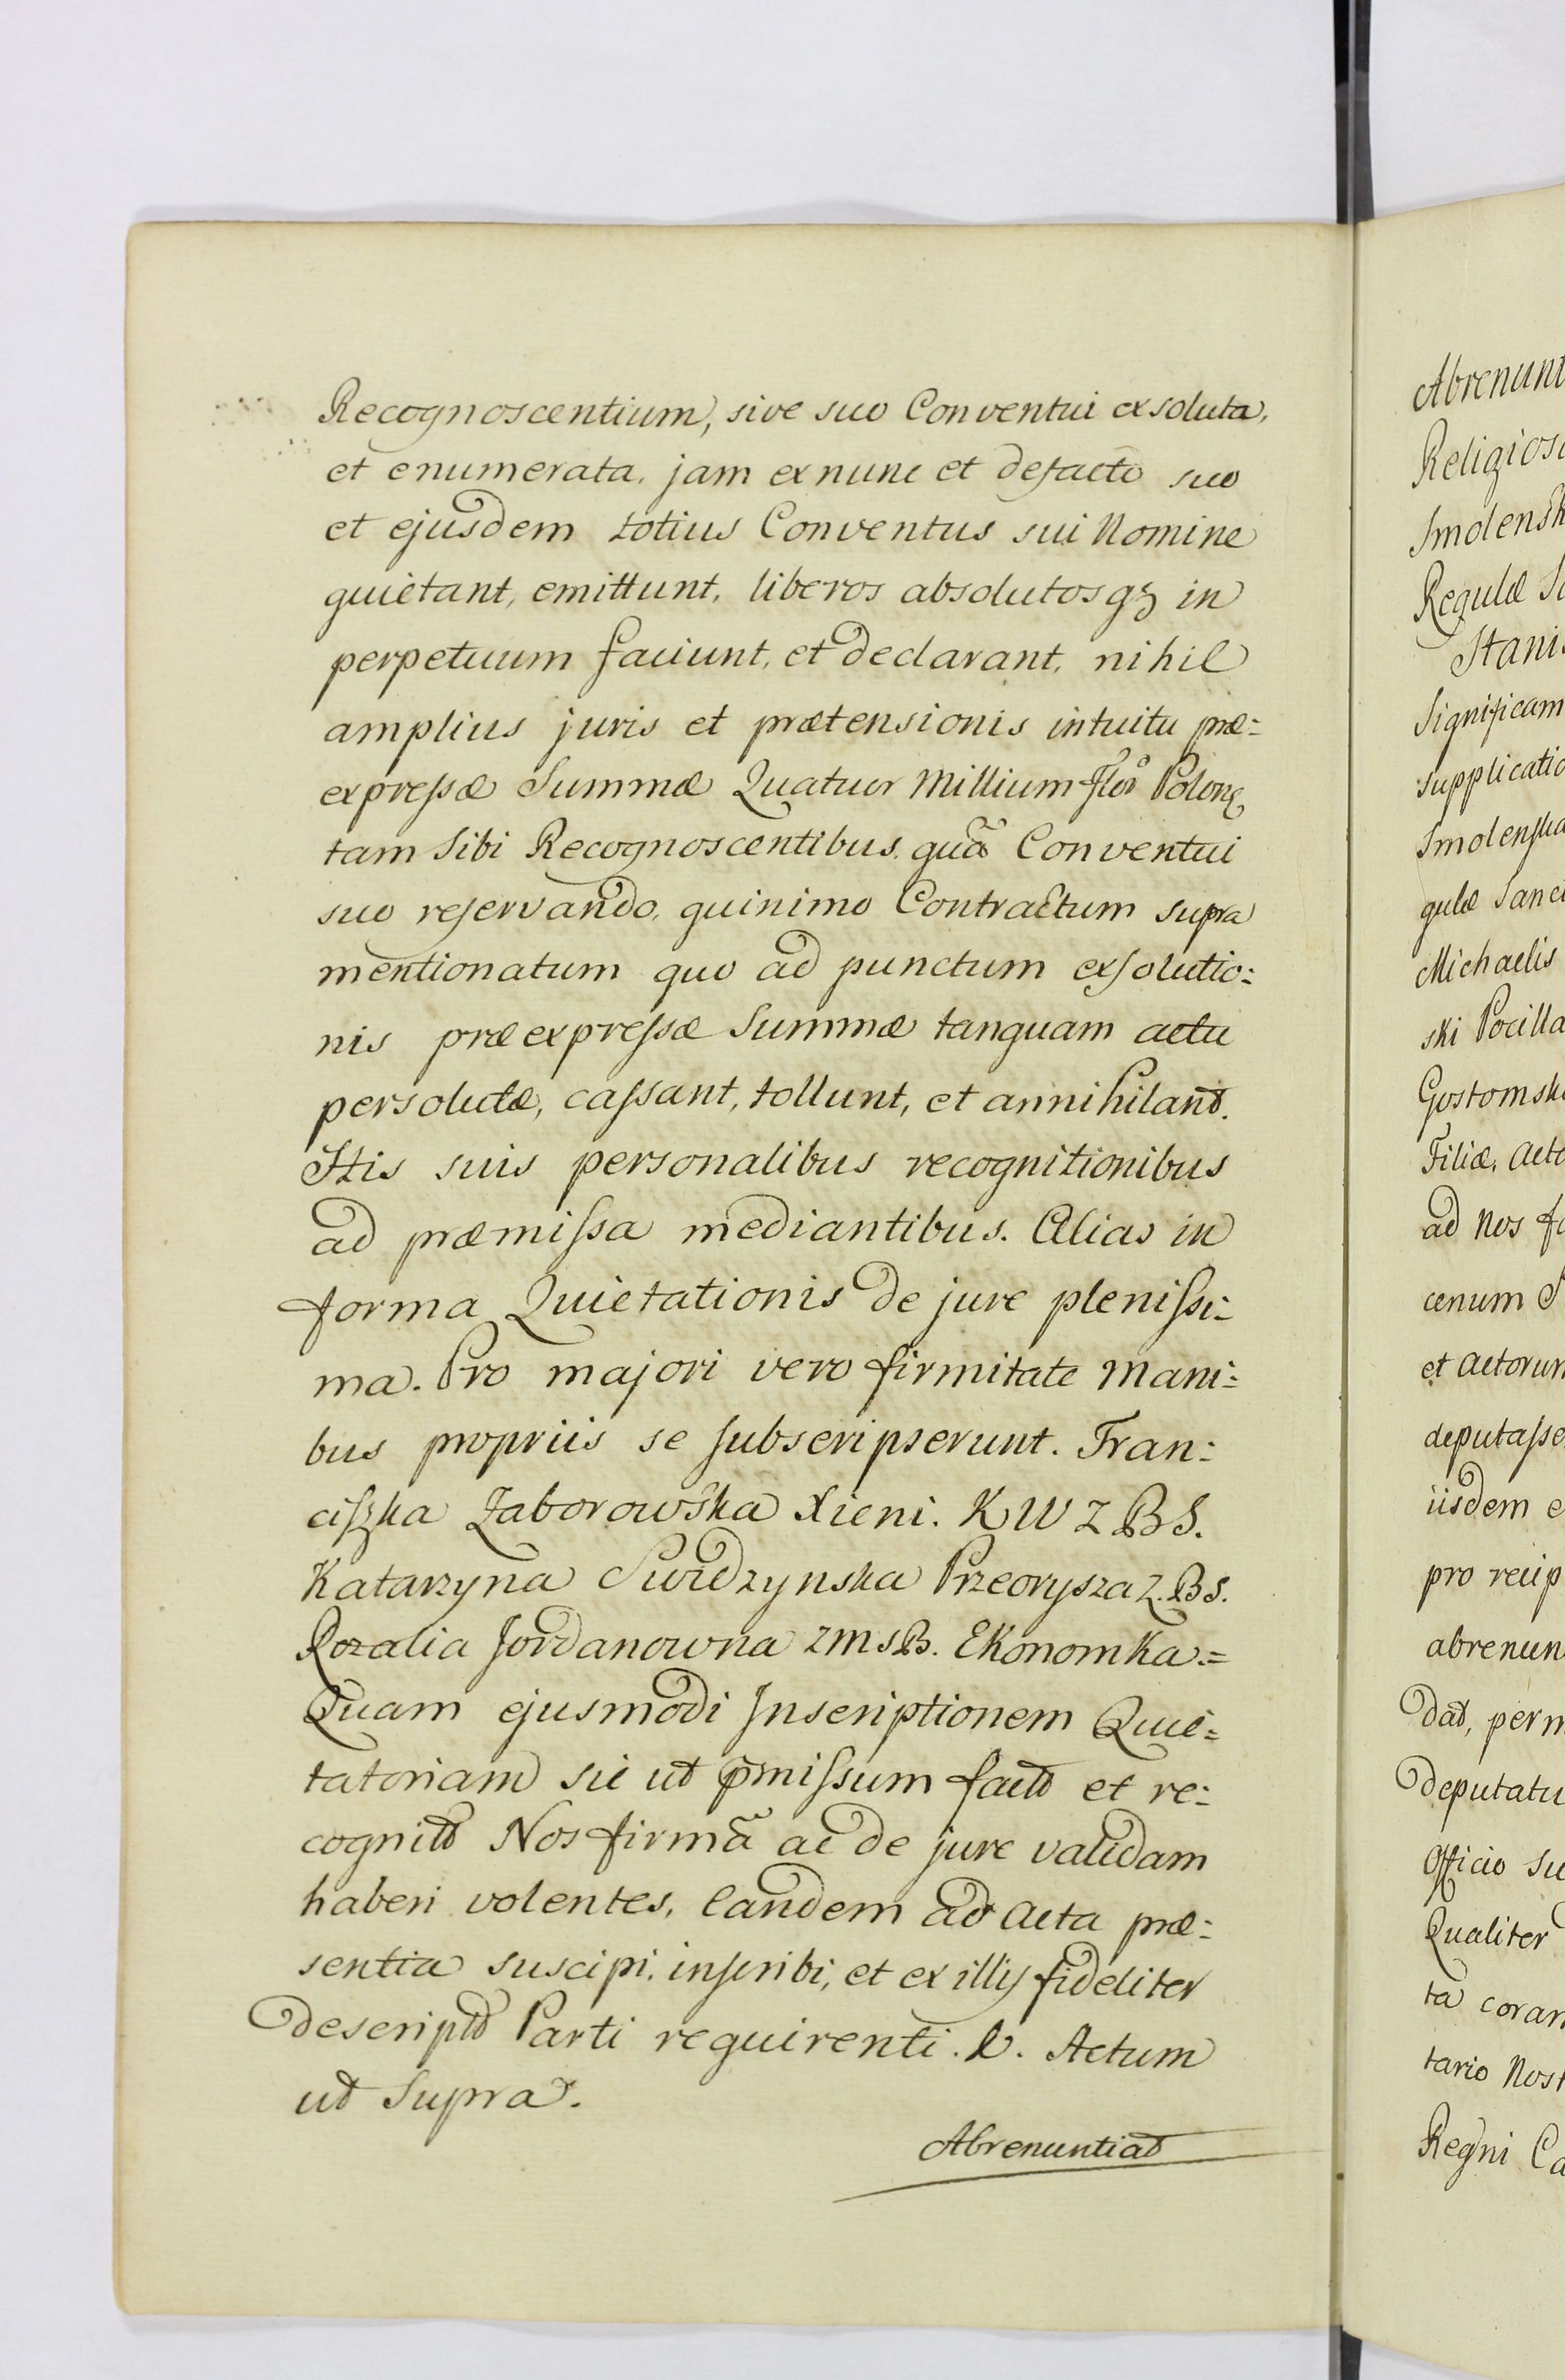 Recognoscentium, sive suo Conventui exsoluta,
et enumerata, jam ex nunc et defacto suo
et ejusdem totius Conventus sui Nomine
quietant, emittunt, liberos absolutosqꝫ in
perpetuum faciunt, et declarant, nihil
amplius juris et prætensionis intuitu præ=
expressæ Summæ Quatuor Millium flor Polonꝫ
tam Sibi Recognoscentibus quã Conventui
suo reservando, quinimo Contractum supra
mentionatum quo ad punctum exsolutio=
nis præexpressæ Summæ tanquam actu
persolutæ, cassant, tollunt, et annihilant.
Htis suis personalibus recognitionibus
ad præmissa mediantibus. Alias in
forma Quietationis de jure plenissi=
ma. Pro majori vero firmitate Mani=
bus propriis se subscripserunt. Fran=
ciszka Zaborowska Xieni. K W Z B S.
Katarzyna Swidzynska Przeorysza Z. B S.
Rozalia Jordanowna Z M S B. Ekonomka.=
Quam ejusmodi Inscriptionem Quie=
tatoriam sic ut p̃missum fact et re=
cognit Nos firmã ac de jure validam
haberi volentes, Eandem ad Acta præ=
sentia suscipi, inscribi, et ex illis fideliter
descript Parti requirenti. Actum
ut Supra.
Abrenuntiat
Abrenunt
Religios
Smolensk
Regulæ S
Stanis
Significam
supplicatio
Smolenska
gulæ Sanct
Michaelis
ski Pocilla
Gostomsk
Filiæ, Acto
ad Nos f
cenum S
et Actorum
deputasse
iisdem e
pro recip
abrenun
dat, perm
deputatu
Officio Su
Qualiter
ta coram
tario Nost
Regni Ca